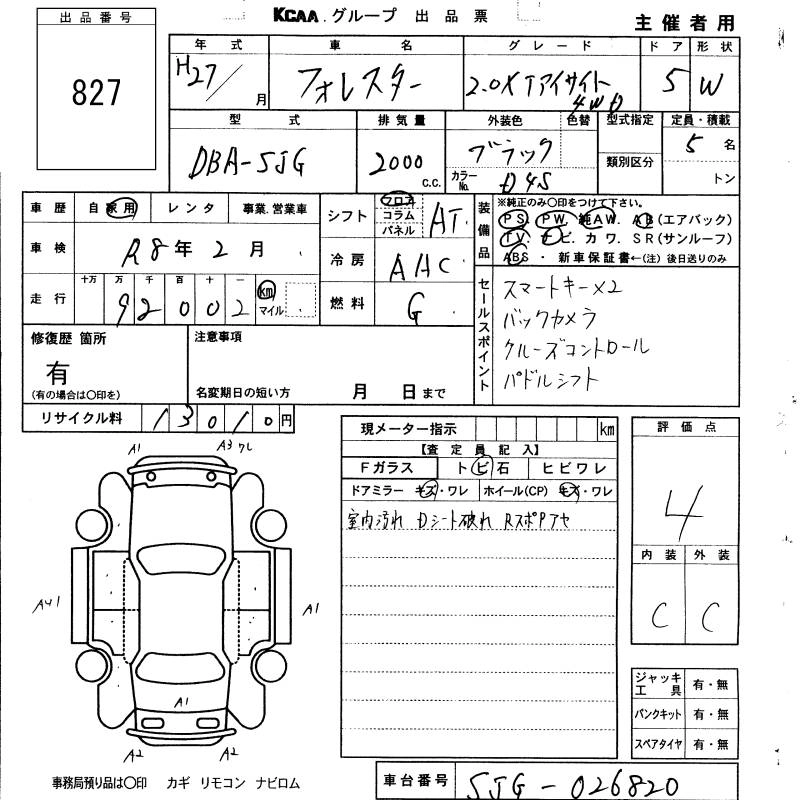 KCAA グループ 出品票
主催者用
出品番号
827
年式 車名 グレード ドア 形状
H27/ 月 フォレスター 2.0XTアイサイト 4WD 5 W
型式 排気量 外装色 色替 型式指定 定員・積載
DBA-SJG 2000 C.C. ブラック カラーNo. D4S 類別区分 5 名 トン
車歴 自家用 レンタ 事業.営業車
車検 R8年 2月
走行 十万 万 千 百 十 一 92002 km マイル
シフト フロア コラム パネル AT
冷房 AAC
燃料 G
装備品 ※純正のみ○印をつけて下さい。
PS. PW. 純AW. AB(エアバック)
TV. ナビ. カワ. SR(サンルーフ)
ABS ・ 新車保証書←(注) 後日送りのみ
セールスポイント
スマートキー×2
バックカメラ
クルーズコントロール
パドルシフト
修復歴 箇所
有
(有の場合は○印を)
注意事項
名変期日の短い方 月 日まで
リサイクル料 13010円
現メーター指示 km
【査定員記入】
Fガラス トビ石 ヒビワレ
ドアミラー キズ・ワレ ホイール(CP) キズ・ワレ
室内汚れ Dシート破れ RスポPアセ
評価点
4
内装 外装
C C
A1 A3 ワレ
A41 A1
A1
A2 A2
ジャッキ 工具 有・無
パンクキット 有・無
スペアタイヤ 有・無
事務局預り品は○印 カギ リモコン ナビロム
車台番号 SJG-026820